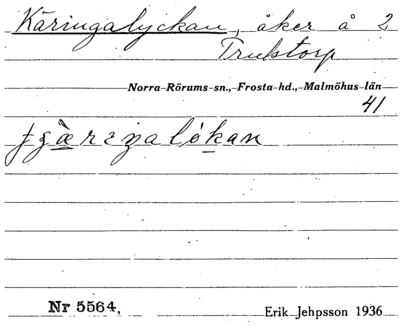 Käringalyckan, åker å 2
Trulstorp
Norra-Rörums-sn., Frosta-hd., Malmöhus-län
41
Nr 5564,
Erik Jehpsson 1936